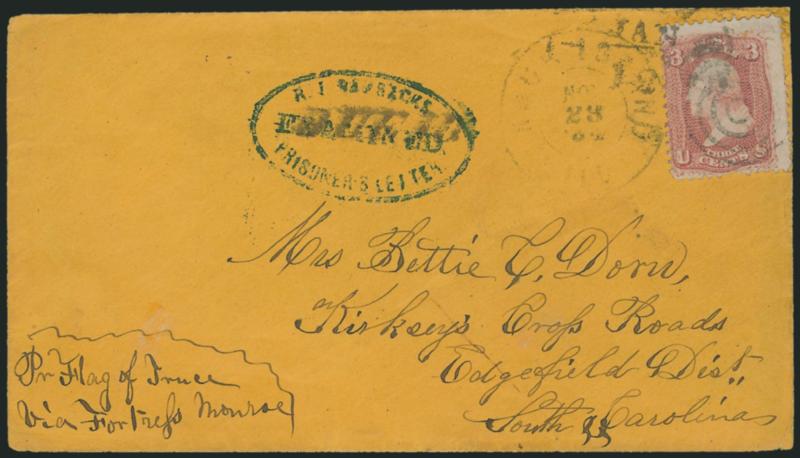 JAN
3 3
U S
THREE
CENTS
R. I. BARRACKS
EXAMINED.
PRISONER'S LETTER
DUE 10
28
Mrs Bettie C. Dorn,
Kirksey's Cross Roads
Edgefield Dist.,
South Carolina
Pr Flag of Truce
Via Fortress Monroe